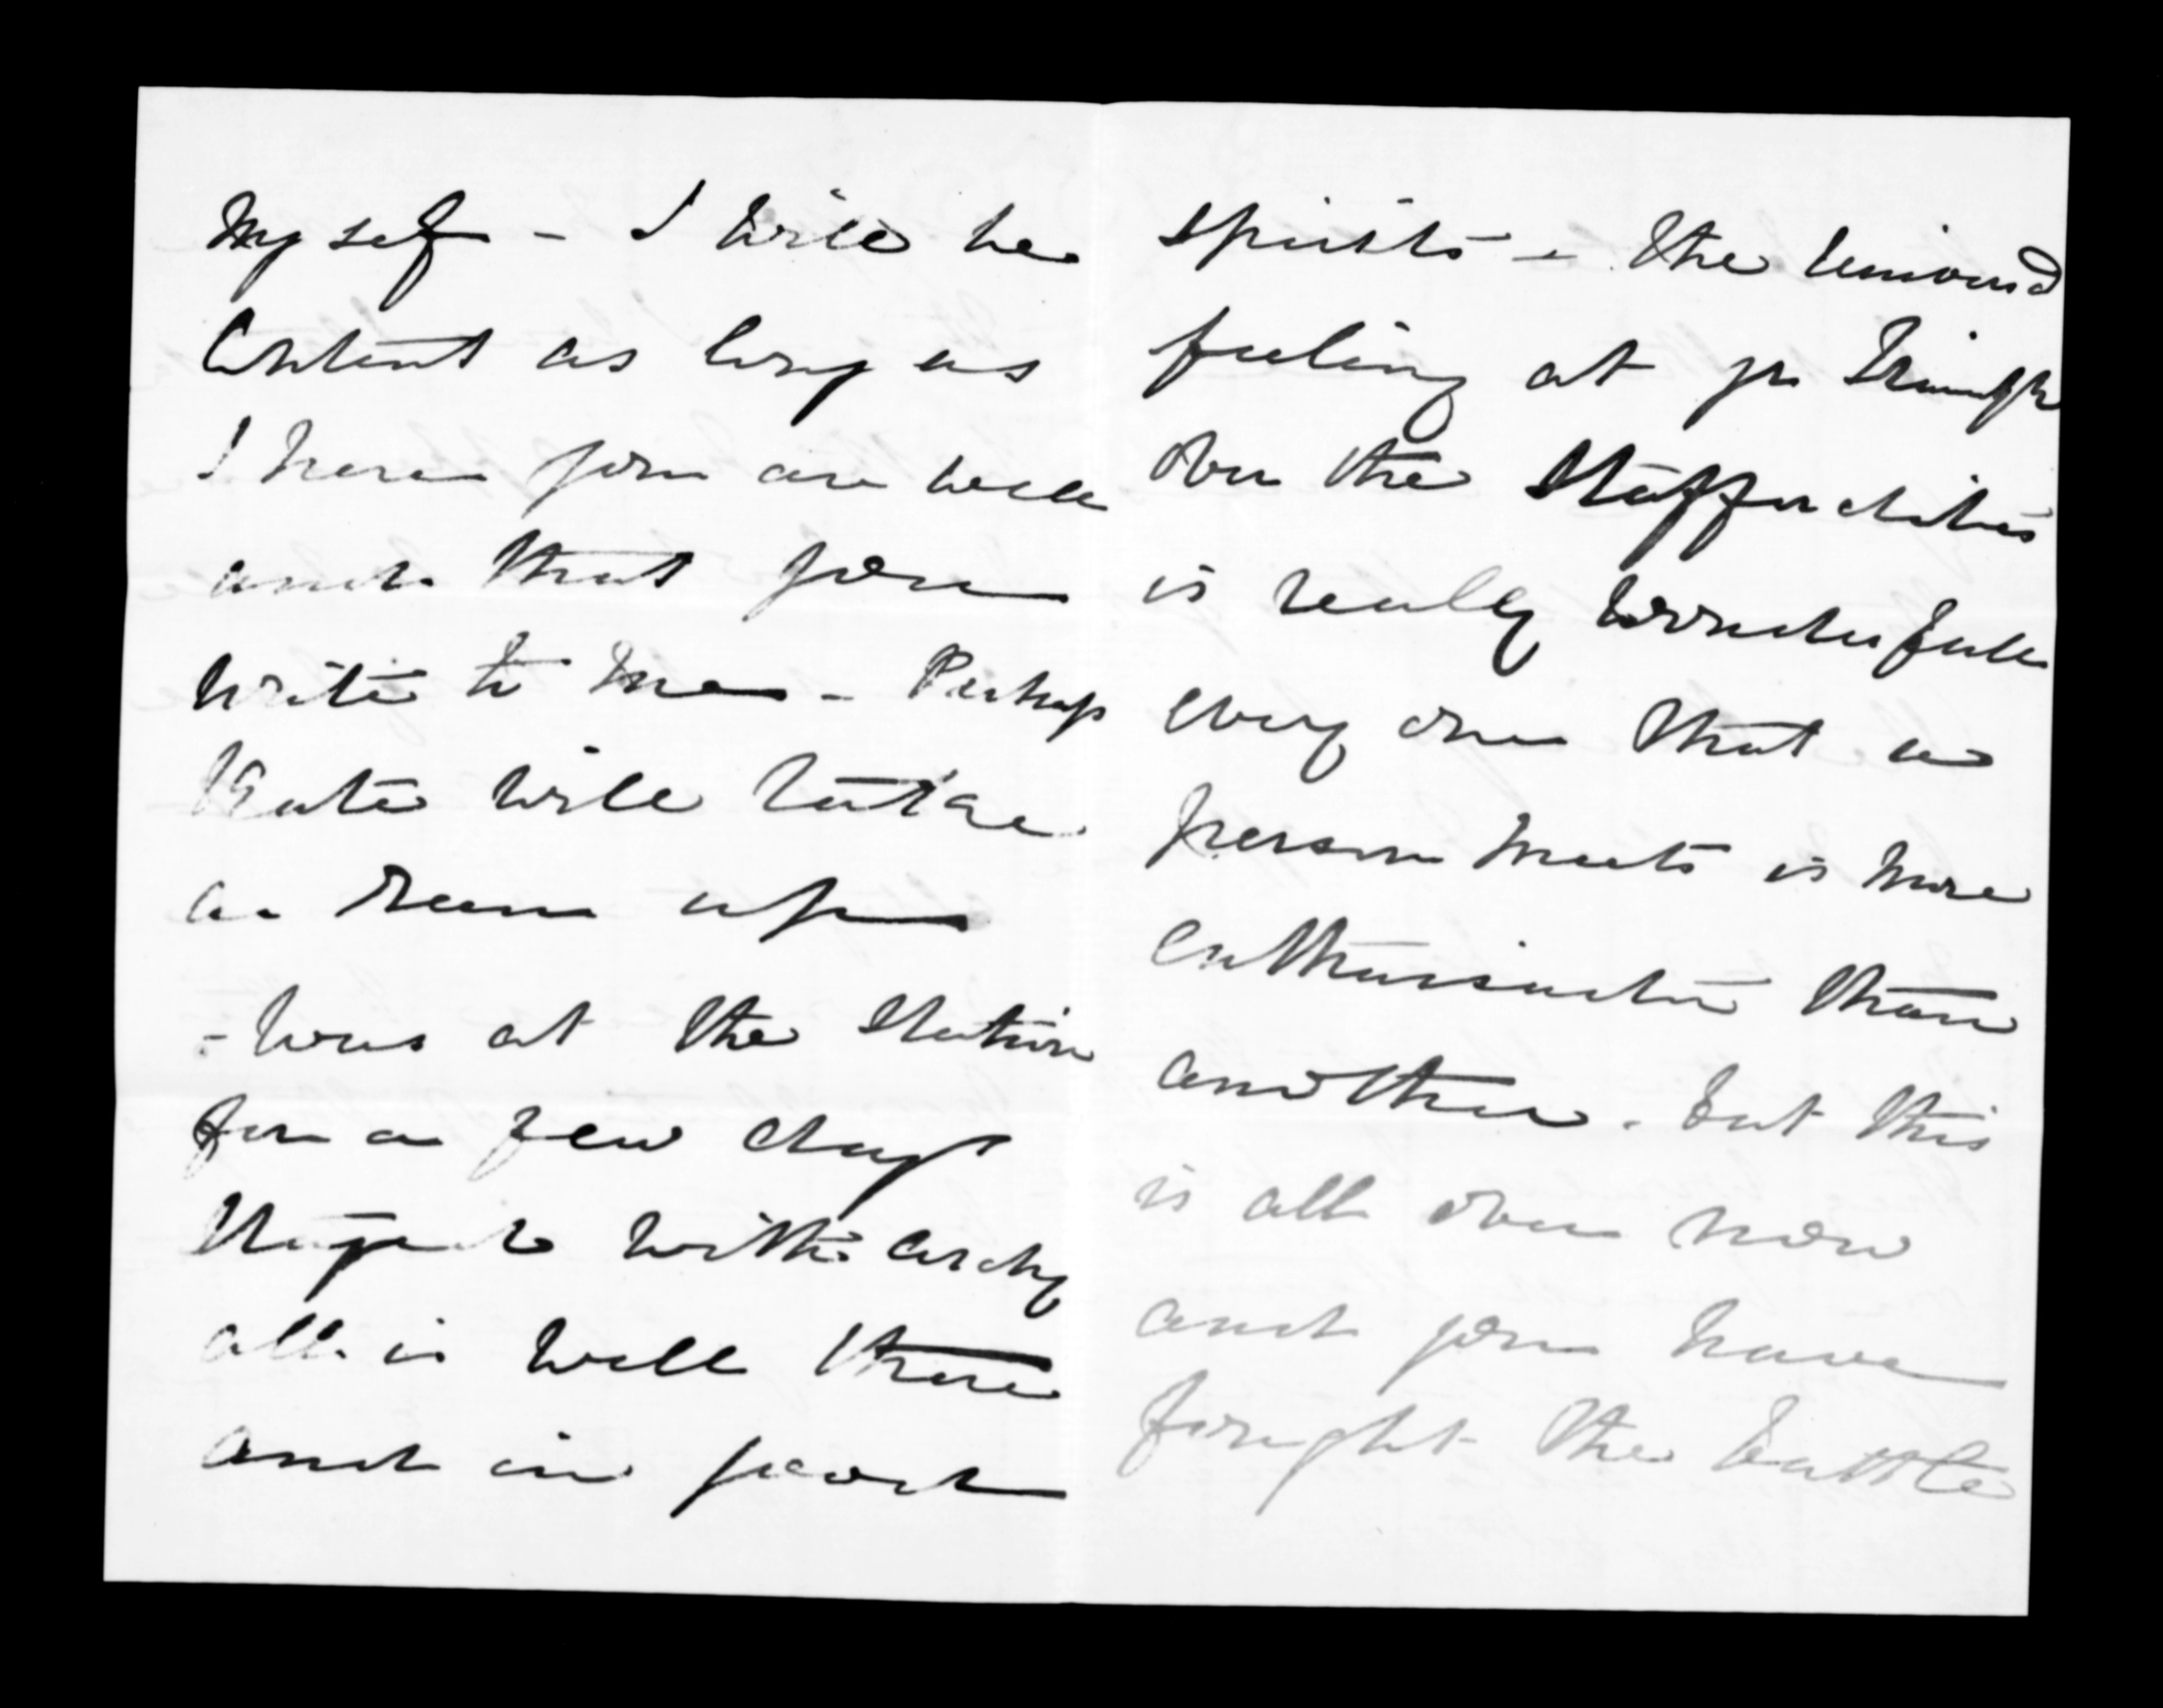 myself - I will be
Content as long as
I hear you are well
and that you
write to me - Perhaps
Kate will take
a run up
- was at the Station
for a few days
with Archy
all is well there
and in good
spirits - the universal
feeling at yr Triumph
over the Staffordites
is really wonderful
every one that a
person meets is more
enthusiastic than
another. but this
is all over now
and you have
fought the battle